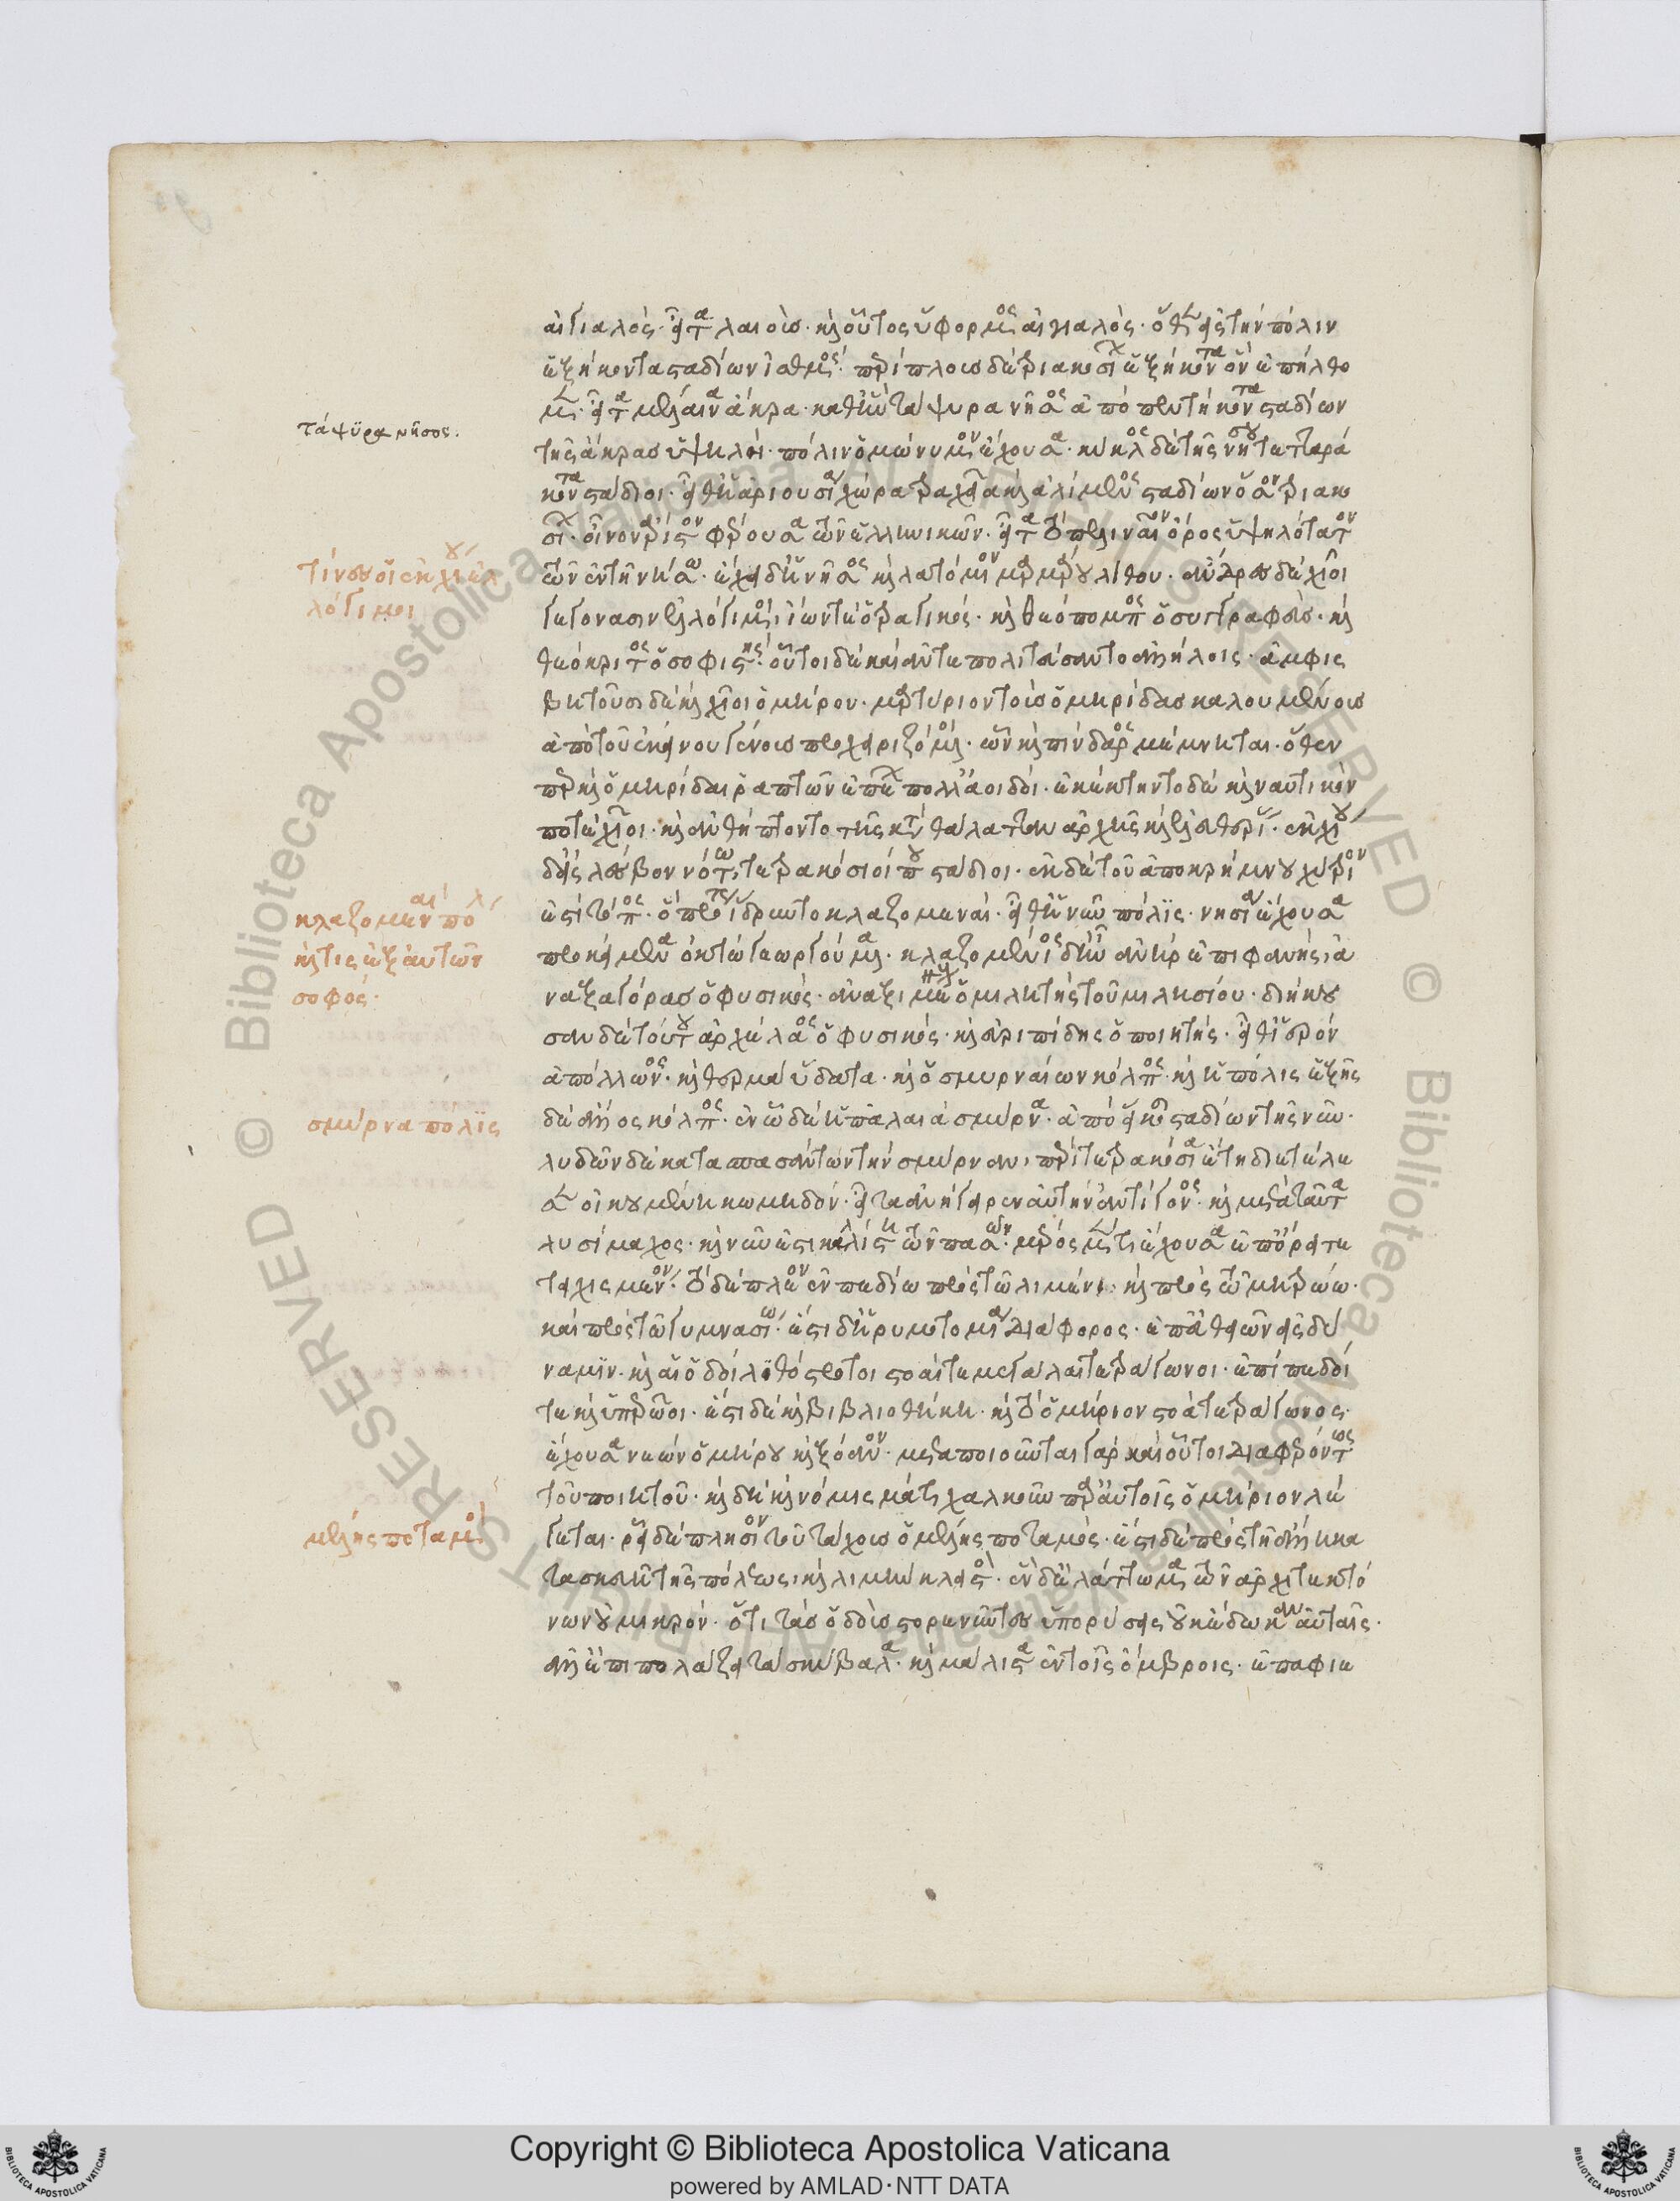 αἰγιαλός· εἶτα λαιοὺς· καὶ οὗτος ὕφορμος αἰγιαλὸς· ὅθεν εἰς τὴν πόλιν
ἑξήκοντα σταδίων ἰσθμός· περίπλους δὲ τριακοσίων ἑξήκοντα ὃν ἐπήλθο
μεν· εἶτα μέλαινα ἄκρα· καθ' ἣν τὰ ψυρα νῆσος ἀπὸ πεντήκοντα σταδίων
τῆς ἄκρας ὑψηλὴ· πόλιν ὁμώνυμον ἔχουσα· κύκλος δὲ τῆς νήσου τετταρά
κοντα στάδιοι· εἶθ' ἡ ἀριουσία χώρα τραχεῖα καὶ ἀλίμενος σταδίων ὅσον τριακο
σίων· οἶνον ἄριστον φέρουσα τῶν ἑλληνικῶν· εἶτα τὸ πελιναῖον ὄρος ὑψηλότατον
τῶν ἐν τῇ νήσῳ· ἔχει δ' ἡ νῆσος καὶ λατόμιον μαρμάρου λίθου· ἄνδρες δὲ χῖοι
γεγόνασιν ἐλλόγιμοι, ἴων τε ὁ τραγικός· καὶ θεόπομπος ὁ συγγραφεὺς· καὶ
θεόκριτος ὁ σοφιστής· οὗτοι δὲ καὶ ἀντεπολιτεύσαντο ἀλλήλοις· ἀμφις
βητοῦσι δὲ καὶ χῖοι ὁμήρου· μαρτύριον τοὺς ὁμηρίδας καλουμένους
ἀπὸ τοῦ ἐκείνου γένους προχειριζόμενοι· ὧν καὶ πίνδαρος μέμνηται· ὅθεν
περ καὶ ὁμηρίδαι ῥαπτῶν ἐπέων πολλ' ἀοιδοί· ἐκέκτηντο δὲ καὶ ναυτικόν
ποτε χῖοι· καὶ ἀνθήπτοντο τῆς κατὰ θάλατταν ἀρχῆς καὶ ἐλευθερίας· ἐκ χίου
δ' εἰς λέσβον νότῳ, τετρακόσιοί που στάδιοι· ἐκ δὲ τοῦ ἀποκρήμνου χυτρίον
ἐστὶ τόπος· ὅπερ ἵδρυντο κλαζομεναί· εἶθ' ἡ νῦν πόλις· νησία ἔχουσα
προκείμενα ὀκτὼ γεωργούμενα· κλαζομένιος δ' ἦν ἀνὴρ ἐπιφανής, ἀ
ναξαγόρας ὁ φυσικός· ἀναξιμένους ὁμιλητής τοῦ μιλησίου· διήκου
σαν δὲ τούτου ἀρχέλαος ὁ φυσικός· καὶ εὐριπίδης ὁ ποιητής· εἶθ' ἱερόν
ἀπόλλωνος· καὶ θερμά ὕδατα· καὶ ὁ σμυρναίων κόλπος· καὶ ἡ πόλις ἑξῆς
δὲ ἄλλος κόλπος· ἐν ᾧ δὲ ἡ παλαιά σμύρνα· ἀπὸ εἴκοσι σταδίων τῆς νῦν·
λυδῶν δὲ κατασπασάντων τὴν σμύρναν, περὶ τετρακόσια ἔτη διετέλε
σεν οἰκουμένη κωμηδόν· εἶτα ἀνήγειρεν αὐτήν ἀντίγονος· καὶ μετὰ ταῦτα
λυσίμαχος· καὶ νῦν ἐστι καλλίστη τῶν πασῶν· μέρος μέν τι ἔχουσα ἐπ' ὄρει τε
τειχισμένον· τὸ δὲ πλέον ἐν πεδίω πρὸς τῷ λιμένι· καὶ πρὸς τῷ μητρώω·
καὶ πρὸς τῷ γυμνασίῳ· ἔστι δ' ἡ ῥυμοτομία διάφορος· ἐπ' εὐθειῶν εἰς δύ
ναμιν· καὶ αἱ ὁδοὶ λιθόστρωτοι στοαί τε μεγάλαι τετράγωνοι· ἐπίπεδοί
τε καὶ ὑπερῶοι· ἔστι δὲ καὶ βιβλιοθήκη· καὶ τὸ ὁμήριον στοὰ τετράγωνος·
ἔχουσα νεὼν ὁμήρου καὶ ξόανον· μεταποιοῦνται γὰρ καὶ οὗτοι διαφερόντως
τοῦ ποιητοῦ· καὶ δὴ καὶ νόμισμά τι χαλκοῦν παρ' αὐτοῖς ὁμήριον λέ
γεται· ῥεῖ δὲ πλησίον τοῦ τείχους ὁ μέλης ποταμός· ἔστι δὲ πρὸς τῇ ἄλλη κα
τασκευῇ τῆς πόλεως, καὶ λιμὴν κλειστός· ἓν δ' ἐλάττωμα τῶν ἀρχιτεκτό
νων οὐ μικρόν· ὅτι τὰς ὁδοὺς στορνύντες ὑπορύσεις οὐκ ἔδωκαν αὐταῖς·
ἀλλ' ἐπιπολάζει τὰ σκύβαλα· καὶ μάλιστα ἐν τοῖς ὄμβροις· ἐπαφιε
τὰ ψύρα νῆσος.
τίνες οἱ ἐκ χίου ἐλ
λόγιμοι
κλαζομεναὶ πόλις
καὶ τις ἐξ αὐτῶν
σοφός·
σμύρνα πολις
μέλης ποταμός
Copyright © Biblioteca Apostolica Vaticana
powered by AMLAD·NTT DATA